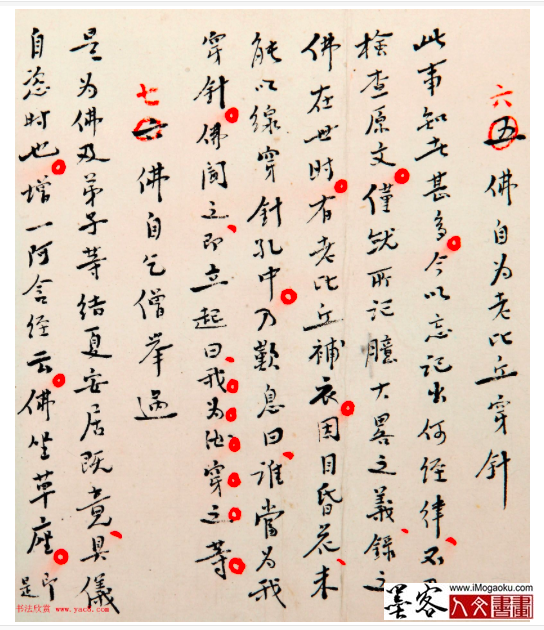 六 五 佛自為老比丘穿針
此事知者甚多今以忘記出何經律不
檢查原文僅就所記臆大畧之義錄之
佛在世时有老比丘補衣因目昏花未
能以線穿針孔中乃歎息曰誰當為我
穿針佛聞之即立起曰我為汝穿之等
七 六 佛自乞僧舉過
是為佛及弟子等結夏安居既竟具儀
自恣时也增一阿含经云佛坐草座即是
书法欣赏 www.yac8.com
墨客 www.iMogaoku.com
人文書畫